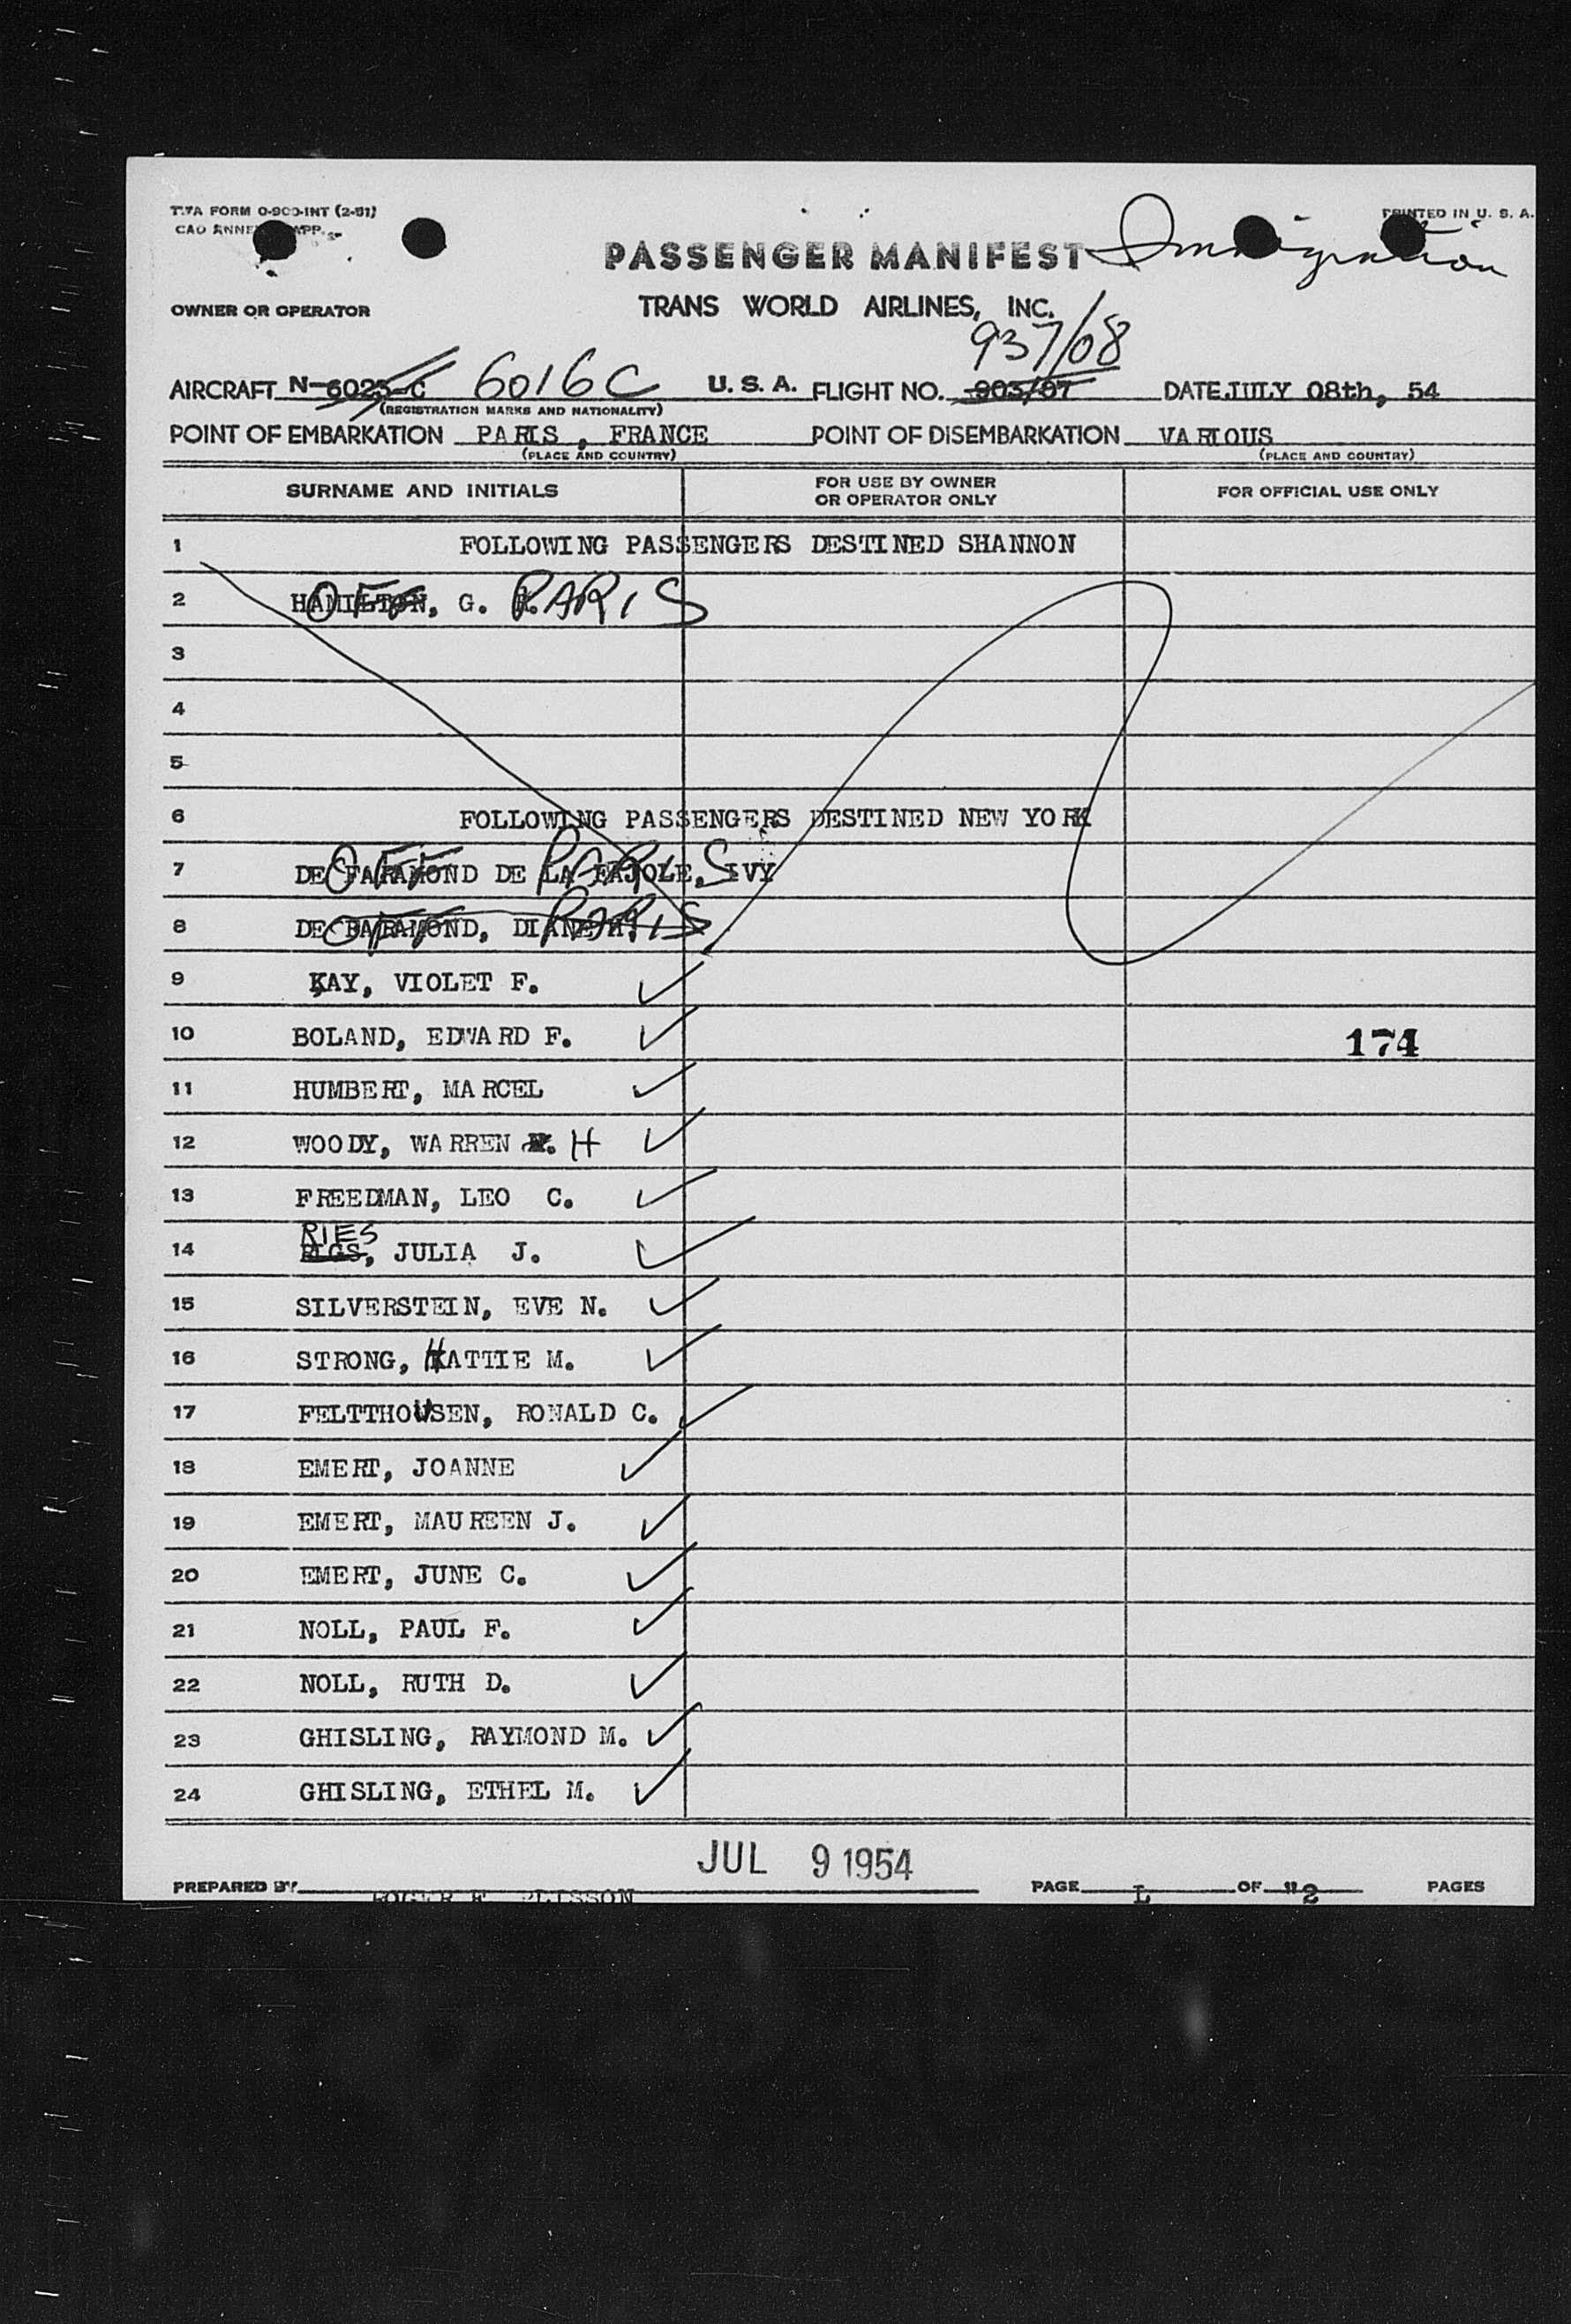 TWA FORM O-900-INT (2-51) PRINTED IN U. S. A.
CAO ANNEX APP.
PASSENGER MANIFEST Immigration
OWNER OR OPERATOR TRANS WORLD AIRLINES, INC.
937/08
AIRCRAFT N-6025-C 6016C U. S. A. FLIGHT NO. 903/07 DATE JULY 08th, 54
(REGISTRATION MARKS AND NATIONALITY)
POINT OF EMBARKATION PARIS, FRANCE POINT OF DISEMBARKATION VARIOUS
(PLACE AND COUNTRY) (PLACE AND COUNTRY)
SURNAME AND INITIALS FOR USE BY OWNER OR OPERATOR ONLY FOR OFFICIAL USE ONLY
1 FOLLOWING PASSENGERS DESTINED SHANNON
2 HAMILTON, G. OFF PARIS
3
4
5
6 FOLLOWING PASSENGERS DESTINED NEW YORK
7 DE FARAMOND DE LA FAJOLE, IVY OFF PARIS
8 DE FARAMOND, DIANE OFF PARIS
9 KAY, VIOLET F. ✓
10 BOLAND, EDWARD F. ✓ 174
11 HUMBERT, MARCEL ✓
12 WOODY, WARREN H ✓
13 FREEDMAN, LEO C. ✓
RIES
14 JULIA J. ✓
15 SILVERSTEIN, EVE N. ✓
16 STRONG, HATTIE M. ✓
17 FELTTHOUSEN, RONALD C. ✓
18 EMERT, JOANNE ✓
19 EMERT, MAUREEN J. ✓
20 EMERT, JUNE C. ✓
21 NOLL, PAUL F. ✓
22 NOLL, RUTH D. ✓
23 GHISLING, RAYMOND M. ✓
24 GHISLING, ETHEL M. ✓
JUL 9 1954
PREPARED BY ROGER F. PLISSON PAGE 1 OF 2 PAGES